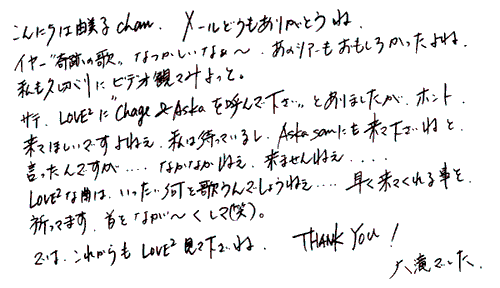 こんにちは由美子chan. メールどうもありがとうね.
イヤー"奇跡の歌"なつかしいなぁ〜. あのツアーもおもしろかったよね.
私も久切りにビデオ観てみよっと。
サテ. LOVE²に"Chage & Askaを呼んで下さい"とありましたが. ホント.
来てほしいですよねぇ. 私は待っているし. Aska sanにも来て下さいねと.
言ったんですが.... なかなかねぇ. 来ませんねぇ....
LOVE²な曲は. いったい何を歌うんでしょうねぇ.... 早く来てくれる事を.
祈ってます. 首をなが〜くして(笑)。
では. これからもLOVE²見て下さいね. THANK YOU!
でした.